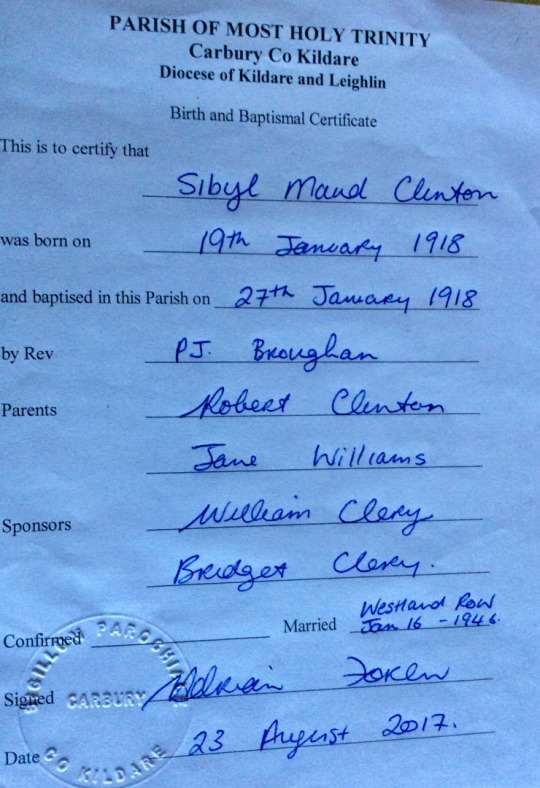 PARISH OF MOST HOLY TRINITY
Carbury Co Kildare
Diocese of Kildare and Leighlin
Birth and Baptismal Certificate
This is to certify that
Sibyl Maud Clinton
was born on 19th January 1918
and baptised in this Parish on 27th January 1918
by Rev P.J. Broughan
Parents Robert Clinton
Jane Williams
Sponsors William Clery
Bridget Clery.
Confirmed Married Westland Row
Jan 16 - 1946.
Signed Adrian
Date 23 August 2017.
SIGILLUM PAROCHIAE
CARBURY
CO KILDARE